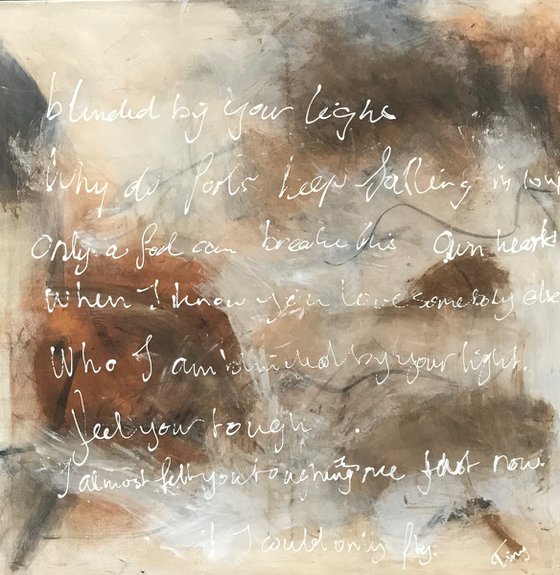 blinded by your light
Why do fools keep falling in love
Only a fool can break his own heart
When I know you love somebody else
Who I am blinded by your light.
feel your tough
I almost felt you toughing me just now.
if I could only fly.